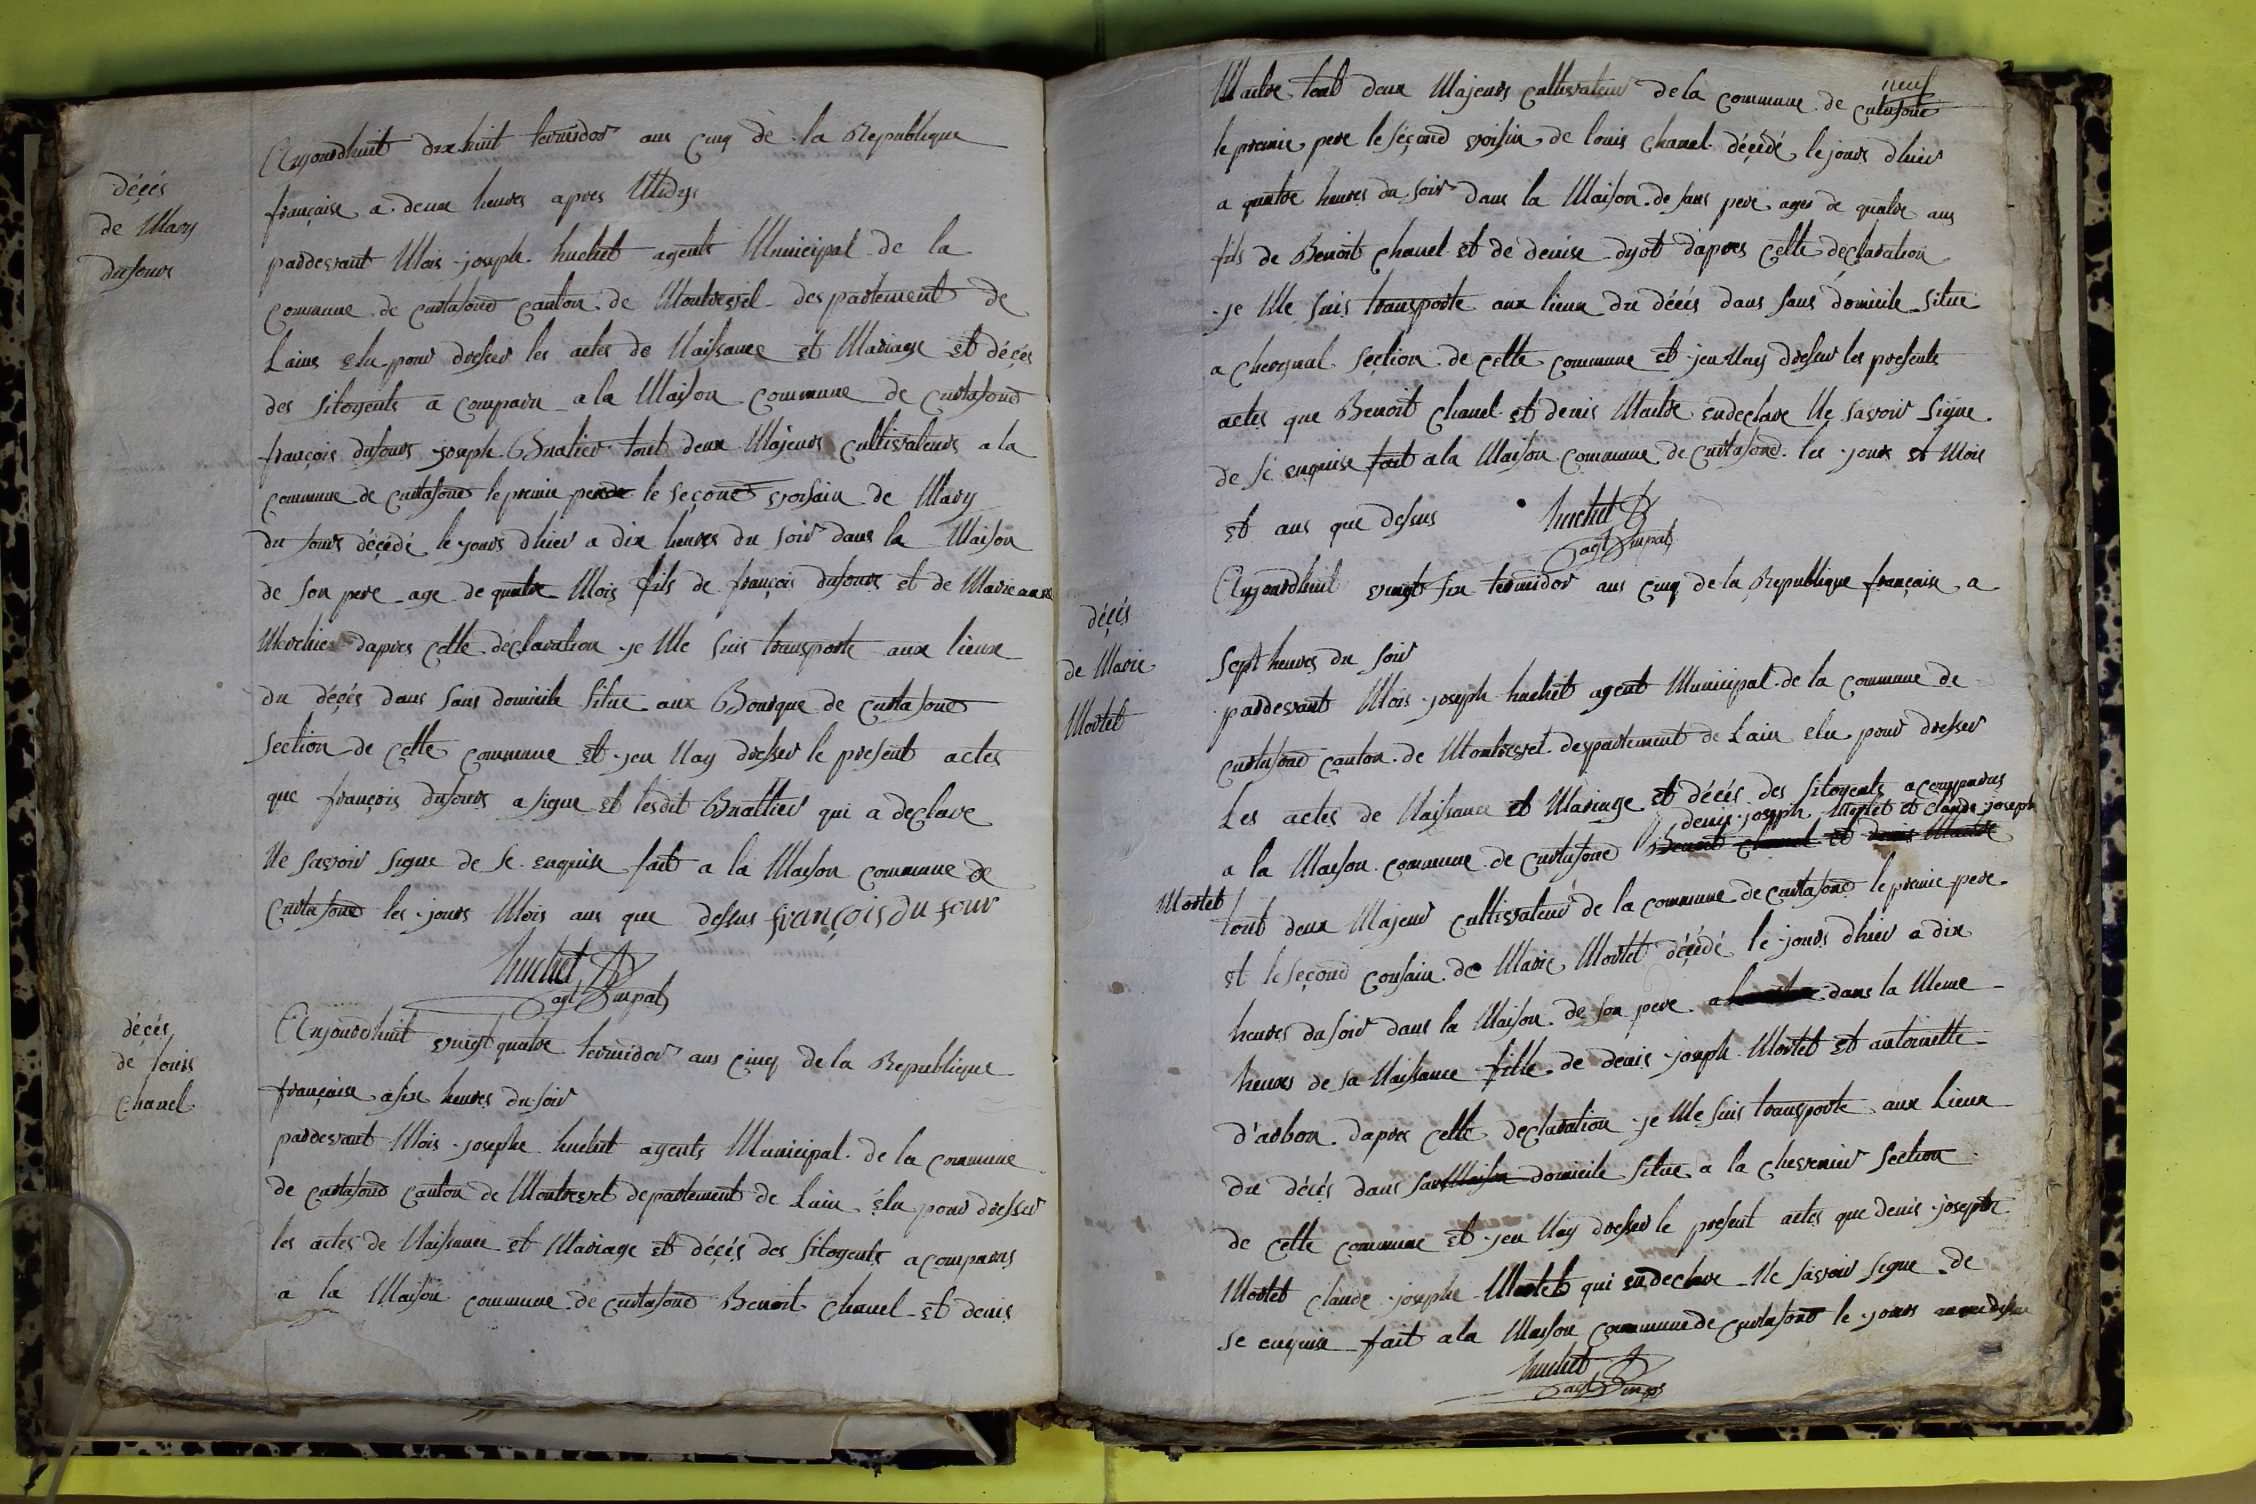 Aujourdhuit dix huit termidor ans Cinq de la Republique
française a deux heures apres Midy
décés
de Mary
dufour
pardevant Mois joseph huchet agents Municipal de la
Commune de Curtafond Canton de Montrevel despartement de
Lains elu pour dresser les actes de Naissance et Mariage et décés
des sitoyents a comparu a la Maison Commune de Curtafond
françois dufours joseph Bruatier tout deux Majeurs Cultivateurs a la
Commune de Curtafond le premie perre le seçond voisain de Mary
du fours décédé le jours dhier a dix heures du soir dans la Maison
de son pere age de quatre Mois fils de françois dufours et de Marie anne
Merchier dapres Cette déclaration je Me suis transporte aux lieux
du décés dans sans domicile situe aux Bourque de Curtafond
section de cette commune et jen Nay dresser le present actes
que françois dufours a signe et lesdit Bruattier qui a declare
Ne savoir signe de se enquise fait a la Maison commune de
Curtafond les jours Mois ans que dessus françois du four
huchet
agt mpal
décés
de louis
Chanel
Aujourdhuit vingt quatre termidor ans Cinq de la Republique
française a six heures du soir
pardevant Mois josephe huchet agents Municipal de la Commune
de Curtafond Canton de Montrevel departement de Lain élu pour dresser
les actes de Naissance et Mariage et décés des sitoyents a comparus
a la Maison commune de Curtafond Benoit Chanel et denis
neuf
Maitre tout deux Majeurs Cultivateur de la Commune de Curtafond
le premie pere le seçond voisin de louis Chanel décédé le jours dhier
a quatre heures du soir dans la Maison de sans pere ages de quatre ans
fils de Benoit Chanel et de denise dyot dapres Cette declaration
je Me suis transporte aux lieux du décés dans sans domicile situe
a Chevignal section de cette commune et jen Nay dresser les presente
actes que Benoit Chanel et denis Maitre en declare Ne savoir signe
de se enquise fait a la Maison commune de Curtafond les jours et Mois
et ans que dessus
huchet
agt mpal
décés
de Marie
Mortel
Aujourdhuit vingt six termidor ans Cinq de la Republique française a
sept heures du soir
pardevant Mois joseph huchet agent Municipal de la Commune de
Curtafond Canton de Montrevel despartement de Lain elu pour dresser
Les actes de Naissance et Mariage et décés des sitoyents a comparus
denis joseph Mortet et Claude joseph
a la Maison commune de Curtafond Benoit Chanel et denis Maitre
Mortet
tout deux Majeur Cultivateur de la Commune de Curtafond le premie pere
et le seçond cousain de Marie Mortet décédé le jours dhier a dix
heures du soir dans la Maison de son pere dans la Meme
heures de sa Naissance fille de denis joseph Mortet et antoinette
d'arbon dapres Cette declaration je Me suis transporte aux Lieux
du décés dans sans Maison domicile situe a la Chevenier section
de cette commune et jen Nay dresser le present actes que denis josephe
Mortet Claude josephe Mortet qui en declare Ne savoir signe de
se enquise fait a la Maison Commune de Curtafond le jours
huchet
agt mpal